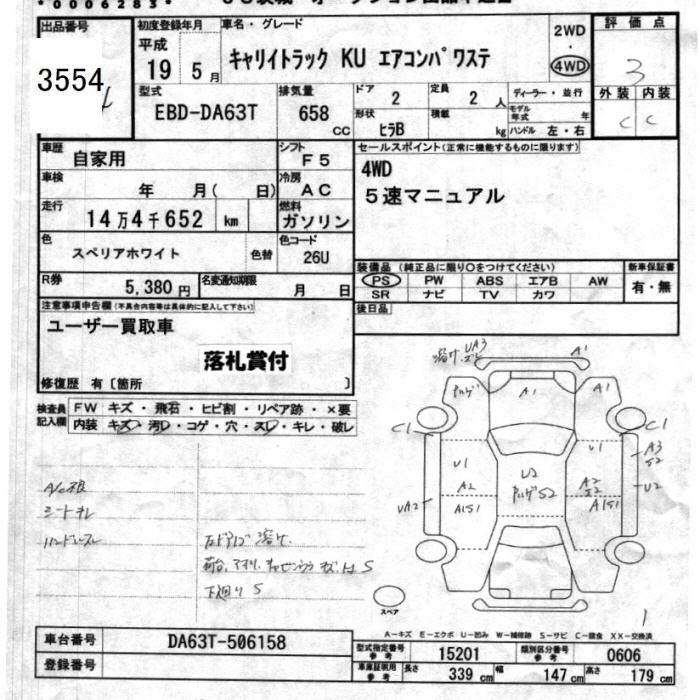 *0006283*
出品番号
3554
初度登録年月
平成
19 5月
車名・グレード
キャリイトラック KU エアコンパワステ
2WD
・
4WD
評価点
3
外装 内装
C C
型式
EBD-DA63T
排気量
658
CC
ドア
2
定員
2 人
ディーラー・並行
形状
ヒラB
積載
kg
モデル年式
年
ハンドル 左・右
車歴
自家用
シフト
F5
セールスポイント(正常に機能するものに限ります)
4WD
5速マニュアル
車検
年 月(日)
冷房
AC
走行
14万4千652 km
燃料
ガソリン
色
スペリアホワイト
色替
色コード
26U
装備品(純正品に限り○をつけてください)
新車保証書
PS PW ABS エアB AW
SR ナビ TV カワ
有・無
R券
5,380円
名変通知期限
月 日
後日品
注意事項申告欄(不具合内容等は具体的に記入して下さい)
ユーザー買取車
落札賞付
修復歴 有〔箇所 〕
検査員
記入欄
FW キズ・飛石・ヒビ割・リペア跡・×要
内装 キズ・汚レ・コゲ・穴・スレ・キレ・破レ
シートキレ
ハンドルスレ
下廻り S
A1
A1
C1
C1
U1
U1
A3
S2
U2
U2
S2
A2
A2
S2
UA2
A1S1
A1S1
スペア
1
A-キズ E-エクボ U-凹み W-補修跡 S-サビ C-腐食 XX-交換済
車台番号
DA63T-506158
型式指定番号
参考
15201
類別区分番号
参考
0606
登録番号
車庫証明用
参考
長さ
339 cm
幅
147 cm
高さ
179 cm